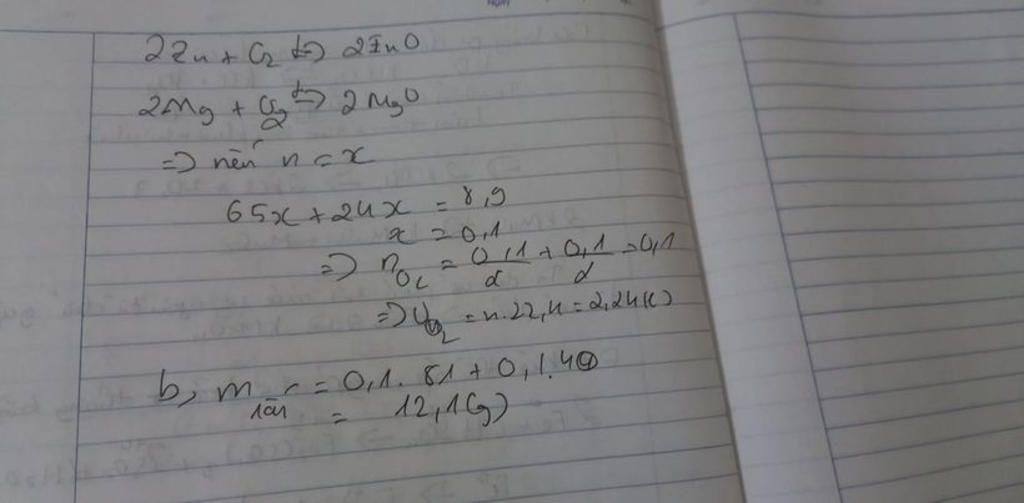 2Zn + O₂ t°→ 2ZnO
2Mg + O₂ t°→ 2MgO
=> nên n = x
65x + 24x = 8,9
x = 0,1
=> nO₂ = 0,1/2 + 0,1/2 = 0,1
=> VO₂ = n.22,4 = 2,24(l)
b, m rắn = 0,1.81 + 0,1.40
= 12,1(g)